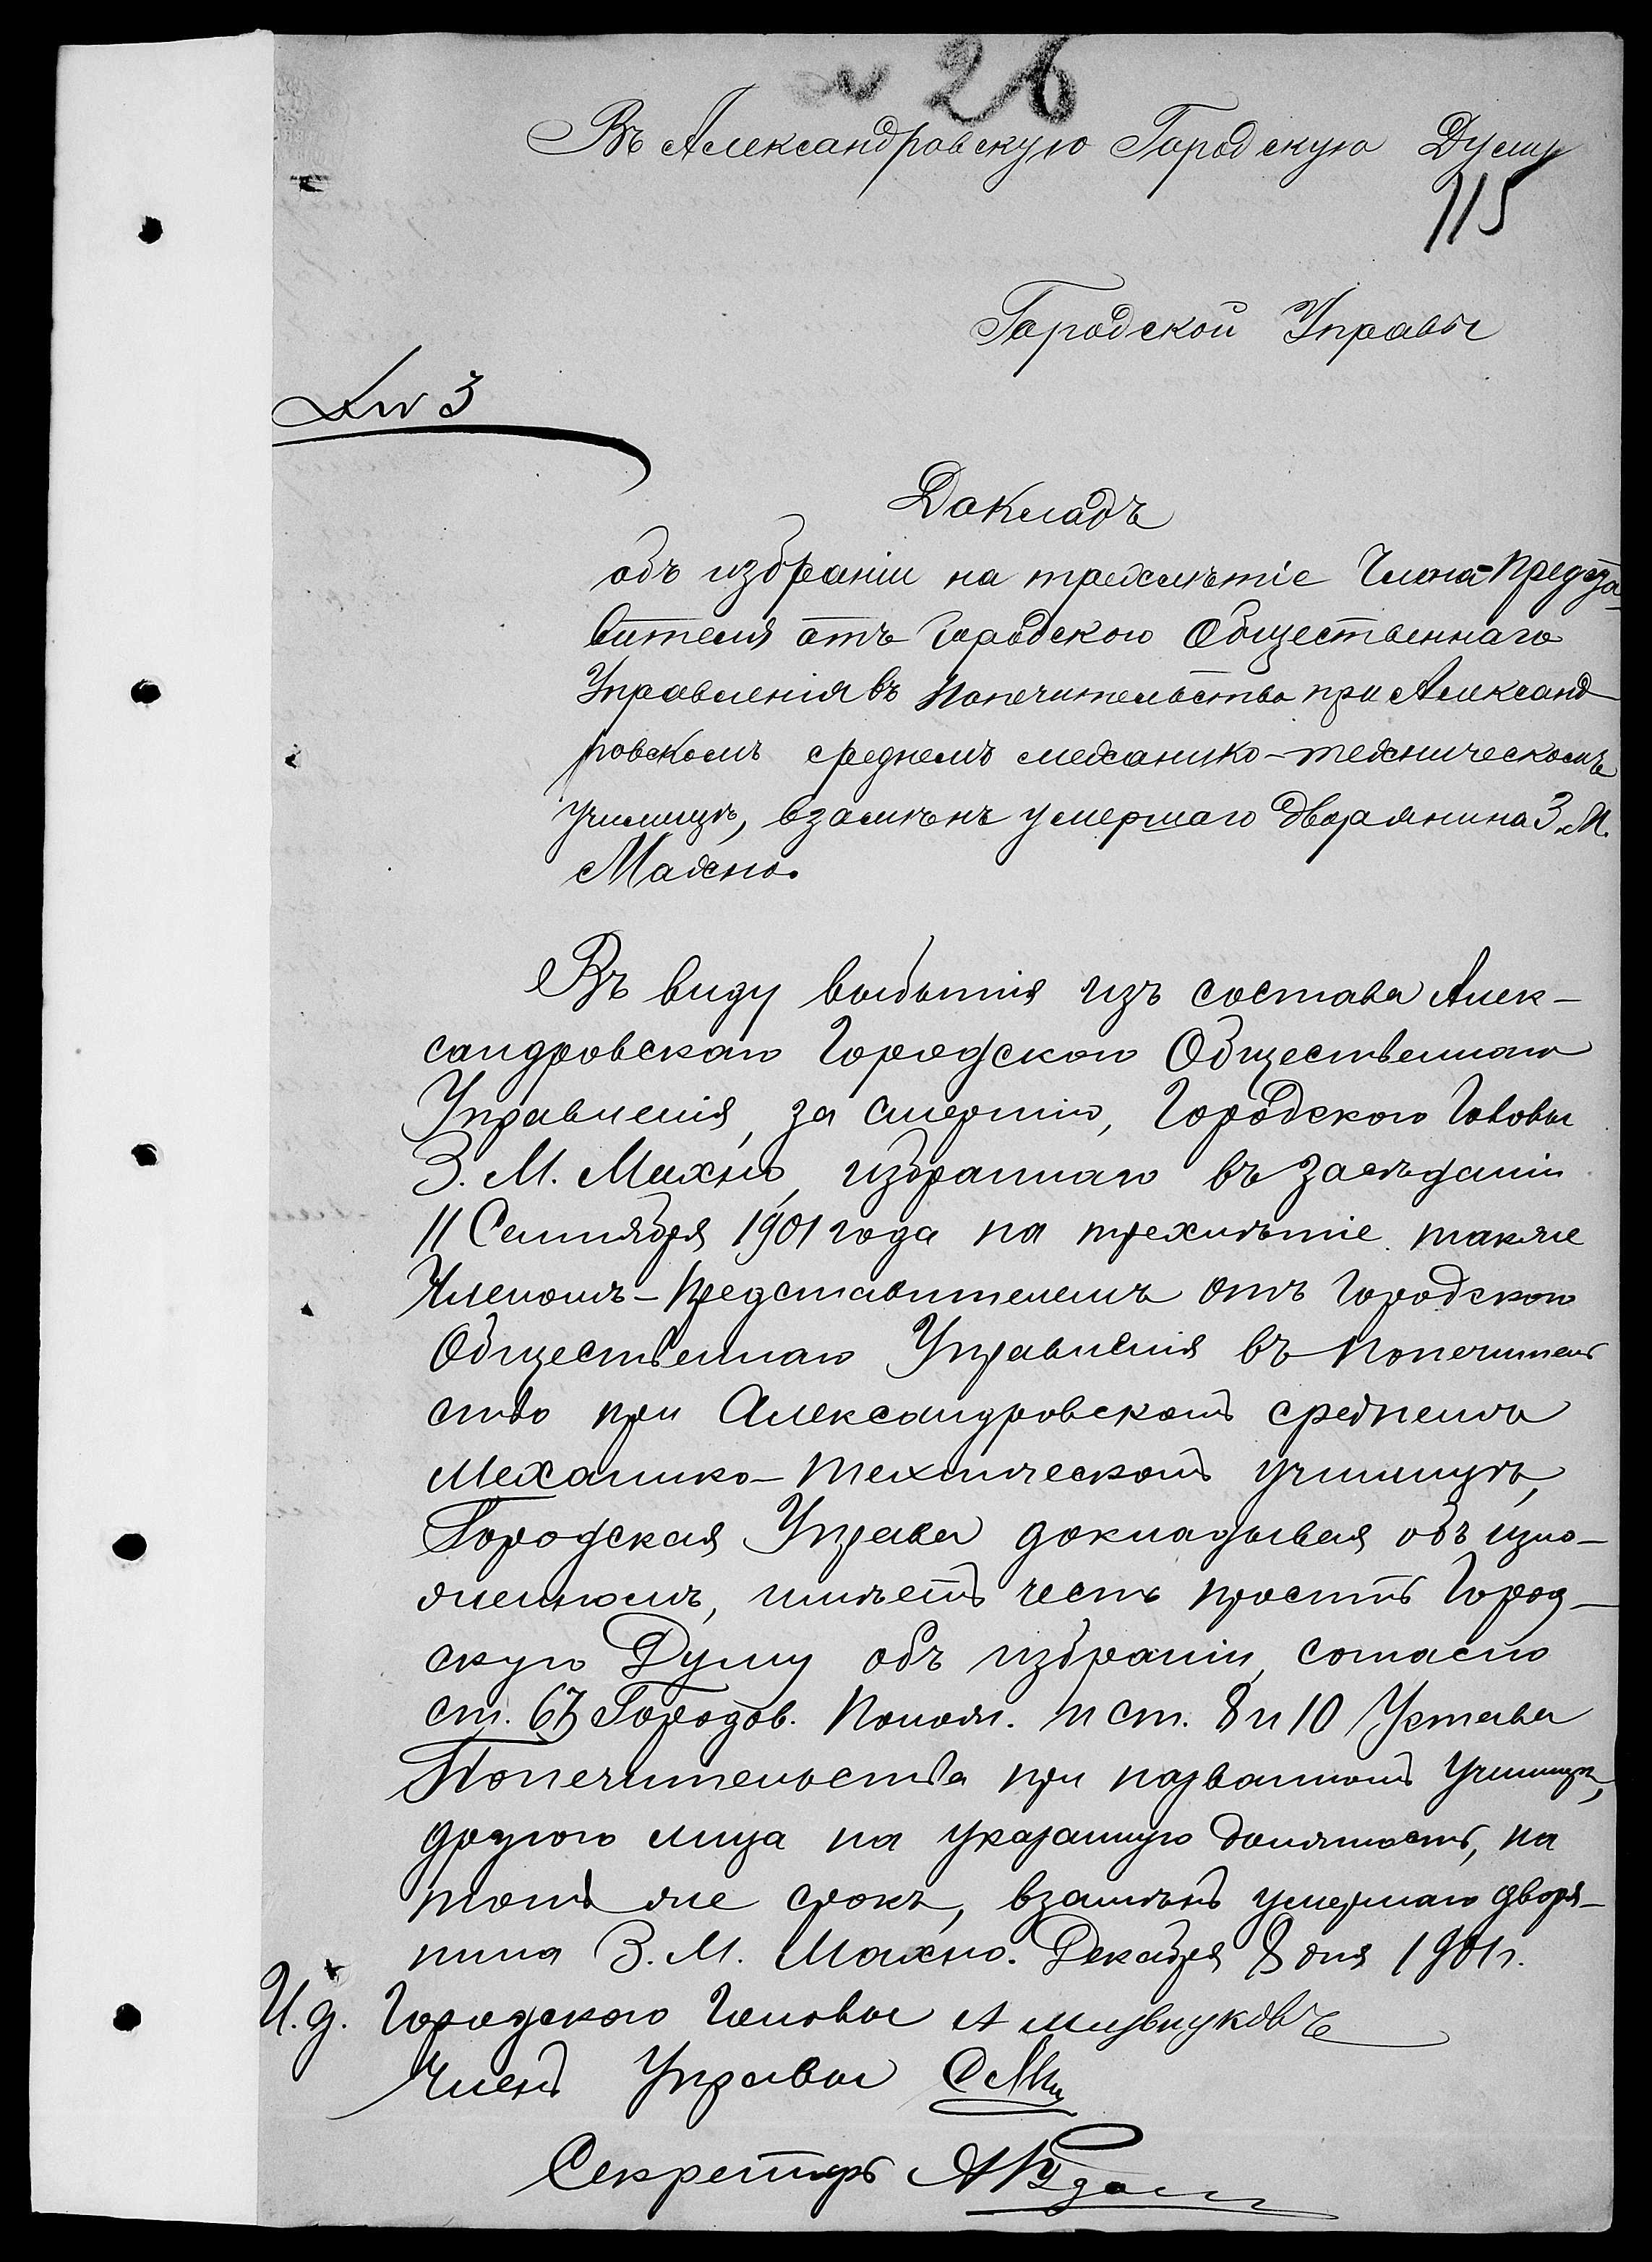 № 26
Въ Александровскую Городскую Думу
115
Городской Управы
№ 3
Докладъ
объ избраніи на трехлѣтіе Члена-предста-
вителя отъ Городского Общественнаго
Управленія въ Попечительство при Александ-
ровскомъ среднемъ механико-техническомъ
училищѣ, взамѣнъ умершаго дворянина З. М.
Махно.
Въ виду выбытія изъ состава Алек-
сандровскаго Городского Общественнаго
Управленія, за смертію, Городского Головы
З. М. Махно, избраннаго въ засѣданіи
11 Сентября 1901 года на трехлѣтіе также
Членомъ-представителемъ отъ Городского
Общественнаго Управленія въ Попечитель
ство при Александровскомъ среднемъ
Механико-техническомъ училищѣ,
Городская Управа докладывая объ изло-
женномъ, имѣетъ честь просить Город-
скую Думу объ избраніи, согласно
ст. 67 Городов. Полож. и ст. 8 и 10 Устава
Попечительства при названномъ училищѣ,
другого лица на указанную должность, на
тотъ же срокъ, взамѣнъ умершаго дворя-
нина З. М. Махно. Декабря 8 дня 1901 г.
И. д. Городского Головы А
Членъ Управы
Секретарь А